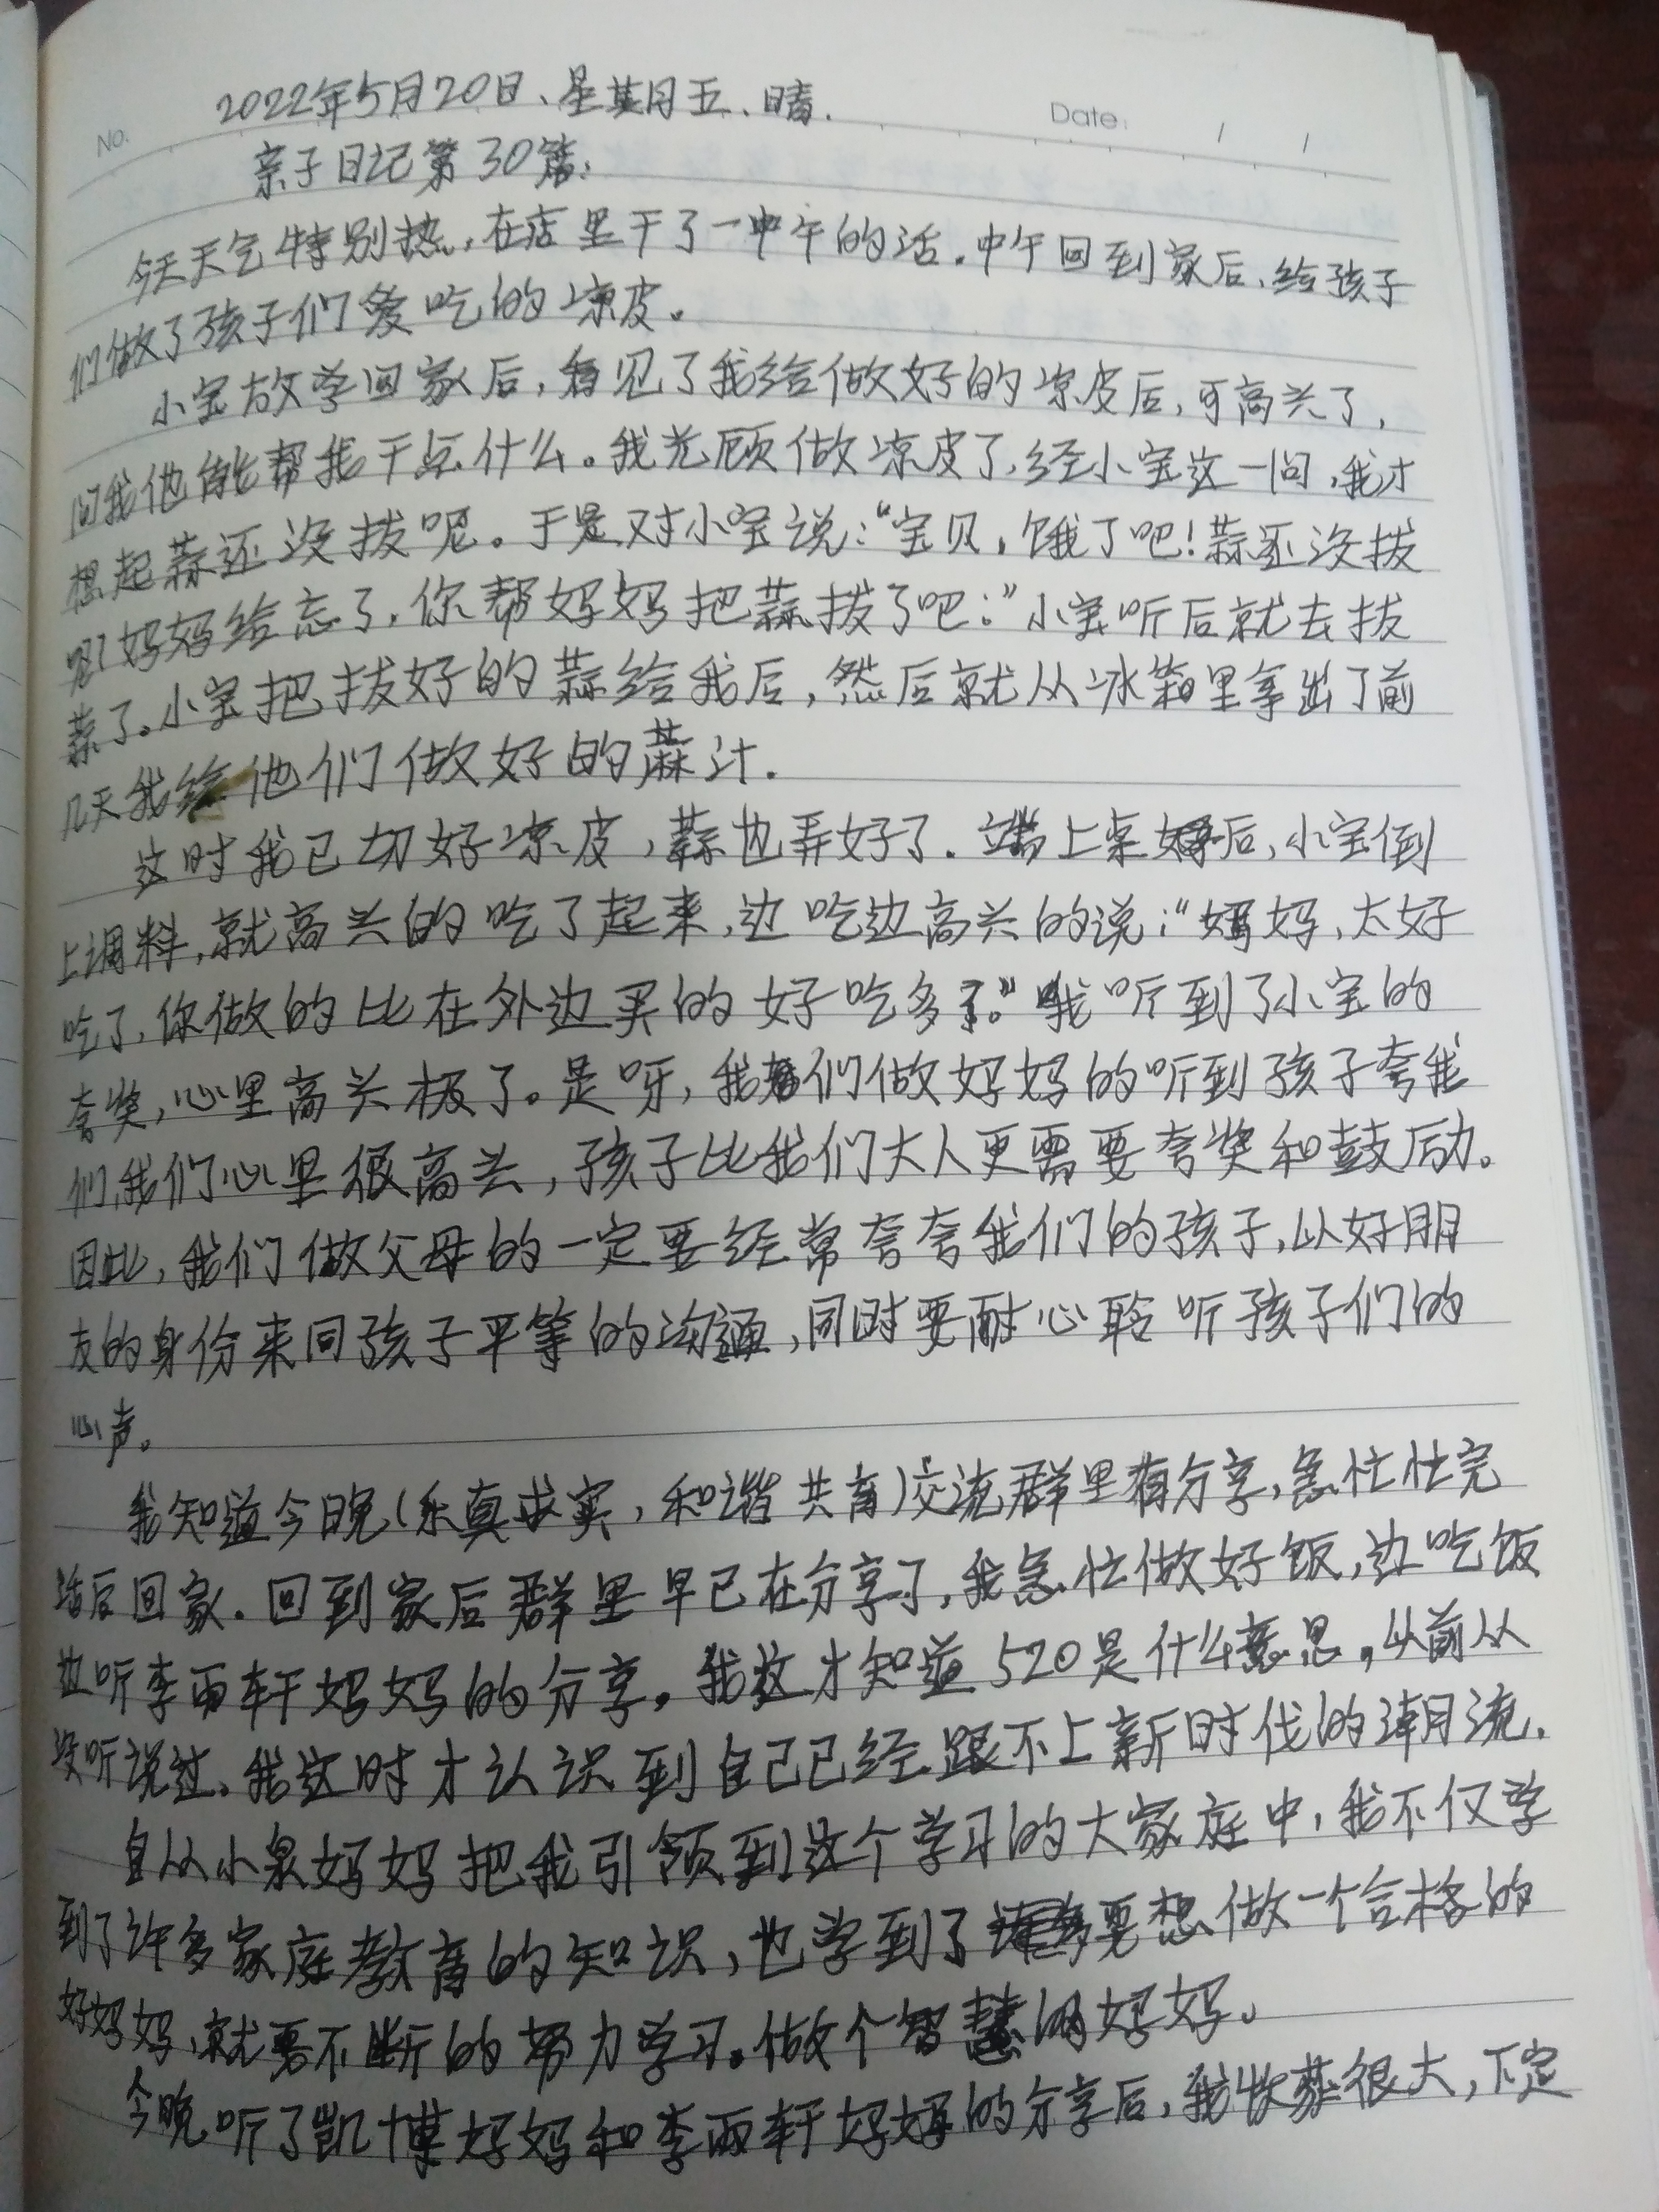 2022年5月20日、星期五、晴.
No.
Date: / /
亲子日记第30篇:
今天天气特别热,在店里干了一中午的活.中午回到家后,给孩子
们做了孩子们爱吃的凉皮。
小宝放学回家后,看见了我给做好的凉皮后,可高兴了,
问我他能帮我干点什么。我光顾做凉皮了,经小宝这一问,我才
想起蒜还没拔呢。于是对小宝说:“宝贝,饿了吧!蒜还没拔
呢!妈妈给忘了,你帮妈妈把蒜拨了吧:”小宝听后就去拔
蒜了。小宝把拔好的蒜给我后,然后就从冰箱里拿出了前
几天我给他们做好的蒜汁.
这时我已切好凉皮,蒜也弄好了.端上桌后,小宝倒
上调料,就高兴的吃了起来,边吃边高兴的说:“妈妈,太好
吃了,你做的比在外边买的好吃多了。”我听到了小宝的
夸奖,心里高兴极了。是呀,我们做妈妈的听到孩子夸我
们,我们心里很高兴,孩子比我们大人更需要夸奖和鼓励。
因此,我们做父母的一定要经常夸夸我们的孩子,以好朋
友的身份来同孩子平等的沟通,同时要耐心聆听孩子们的
心声。
我知道今晚(乐真求实,和谐共育)交流群里有分享,急忙忙完
活后回家.回到家后群里早已在分享了,我急忙做好饭,边吃饭
边听李雨轩妈妈的分享。我这才知道520是什么意思,从前从
没听说过。我这时才认识到自己已经跟不上新时代的潮流.
自从小泉妈妈把我引领到这个学习的大家庭中,我不仅学
到了许多家庭教育的知识,也学到了要想做一个合格的
好妈妈,就要不断的努力学习。做个智慧的妈妈。
今晚听了凯博妈妈和李雨轩妈妈的分享后,我收获很大,下定